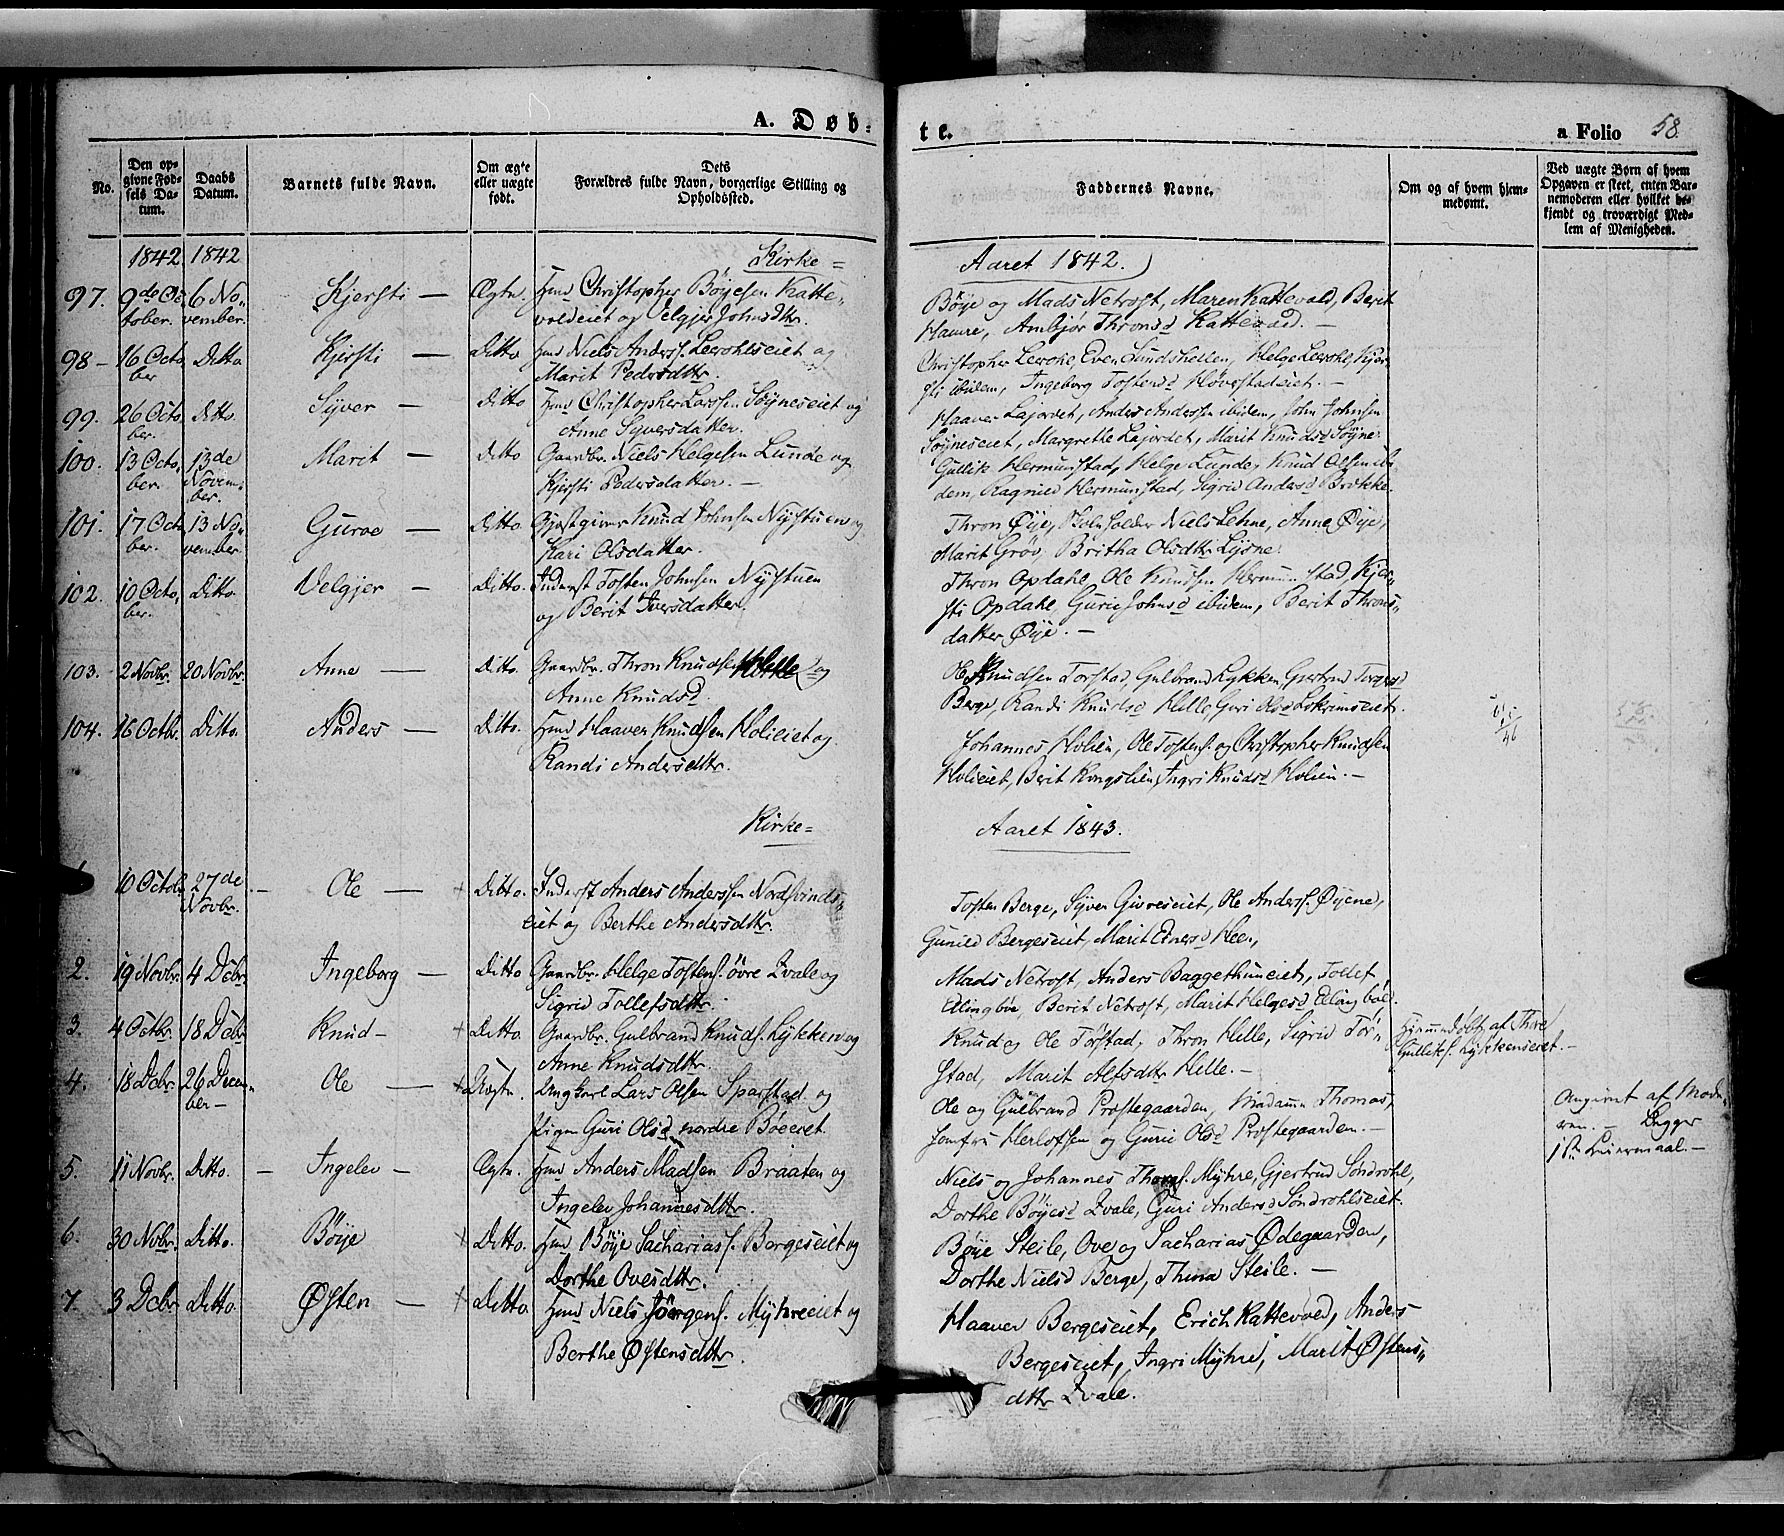 A. Døb-
te.
a Folio 58
No.
Den op-
givne Fød-
sels Da-
tum.
Daabs
Datum.
Barnets fulde Navn.
Om ægte
eller uægte
født.
Dets
Forældres fulde Navn, borgerlige Stilling og
Opholdssted.
Faddernes Navne.
Om og af hvem hjem-
medømt.
Ved uægte Børn af hvem
Opgaven er skeet, enten Bar-
nemoderen eller hvilket be-
kjendt og troværdigt Med-
lem af Menigheden.
1842 1842 Kirke= Aaret 1842.
97. 9de Oc- 6 No- Kjersti — Ægte. Hmd Christopher Böyesen Katte-
tober. vember. voldeiet og Velgjer Johnsdttr.
Böye og Mads Netrost, Maren Kattevold, Berit
Haure, Ambjør Thronsd Kattevold. —
98 — 16 Octo Ditto Kjersti — Ditto Hmd Niels Anders. Leerohlseiet og
ber Marit Pedersdttr.
Christopher Leerohl, Even Sundshellen, Helge Leerohl, Kjer-
sti ibidem, Ingeborg Tostensd Høvestadeiet. —
99. 26 Octo Ditto. Syver — Ditto Hmd Christopher Larssen Søyneseiet og
ber. Anne Syversdatter.
Haaver Lajordet, Anders Anderssen ibidem, John Johnsen
Søyneseiet, Margrethe Lajordet, Marit Knudsd Søyne.
100. 13 Octo, 13de Marit — Ditto Gaardbr. Niels Helgesen Lunde og
ber. Novem- Kjersti Pedersdatter. —
ber.
Gullik Hermunstad, Helge Lunde, Knud Olsen ibi
dem, Ragnild Hermunstad, Sigrid Andersd Brække.
101. 17 Oct 13 No- Guroe — Ditto. Gjæstgiver Knud Johnsen Nystuen og
ber. vember. Kari Olsdatter.
Thron Øye, Nielslehne, Anne Øye,
Marit Grøv, Britha Olsdttr Lysne.
102. 10 Octo, Ditto. Velgjer — Ditto. Inderst Tosten Johnsen Nystuen
ber. og Berit Iversdatter.
Thron Opdahl, Ole Knudsen Hermunstad, Kjer-
sti Opdahl, Gurie Johnsd ibidem, Berit Throns-
datter Øye. —
103. 2 Novbr. 20 Novbr. Anne — Ditto. Gaardbr. Thron Knudsen Helle og
Anne Knudsd.
Ole Knudsen Torstad, Gulbrand Lykken, Gjertrud
Berge, Randi Knudsd Helle, Guri Olsd Lokrimseiet.
104. 16 Octbr. Ditto. Anders — Ditto. Hmd Haaver Knudssen Holieiet og
Randi Andersdttr.
Johannes Holien, Ole Tostens. og Christopher Knudsen
Holieiet, Berit Kongslien, Ingri Knudsd Holien. —
Kirke= Aaret 1843.
10 Octob. 27de — Ole — Ditto. Inderst Anders Anderssen Nordsvinds-
Novbr. eiet og Berthe Andersdttr.
Tosten Berge, Syver Givreseiet, Ole Anders. Øyene,
Gunild Bergeseiet, Marit Hee.
2. 19 Novbr. 4 Dcbr. Ingeborg — Ditto Gaardbr. Helge Tostens. øvre Qvale og
Sigrid Tollefsdttr.
Mads Netrost, Anders Baggethuneiet, Tollef
Ellingbøe, Berit Netrost, Marit Helgesd Ellingbøe.
3. 4 Octbr. 18 Dcbr Knud — Ditto. Gaardbr. Gulbrand Knuds. Lykken og
Anne Knudsdttr.
Knud og Ole Torstad, Thron Helle, Sigrid Tor-
stad, Marit Alfsdttr Helle. —
Hjemmedøbt af Thore
Gulliks. Lykkenseiet. —
4. 18 Dcbr. 26 Decem- Ole — Uægte. Ungkarl Lars Olsen Sparstad og
ber — Pigen Guri Olsd nordre Bøeeiet.
Ole og Gulbrand Præstegaarden, Madamm Thomas,
Jomfru Herlofsen og Gurie Olsd Præstegaarden. —
Angivet af Mode-
ren. — Begges
1ste Leiermaal. —
5. 11 Novbr. Ditto. — Ingelev — Ægte. Hmd Anders Madsen Braaten og
Ingelev Johannesdttr.
Niels og Johannes Thoms. Myhre, Gjertrud Søndrohl,
Dorthe Böyesd Qvale, Guri Andersd Søndrohlseiet.
6. 30 Novbr. Ditto. Böye Ditto. Hmd Böye Sacharias. Bergeseiet og
Dorthe Ovesdttr.
Böye Steile, Ove og Sacharias Ødegaarden,
Dorthe Nielsd Berge, Thina Steile. —
7. 3 Dcbr Ditto. Østen — Ditto. Hmd Niels Jörgens. Myhreeiet og
Berthe Østensdttr.
Haaver Bergeseiet, Erich Kattevold, Anders
Bergeseiet, Ingri Myhre, Marit Østens-
dttr Qvale.